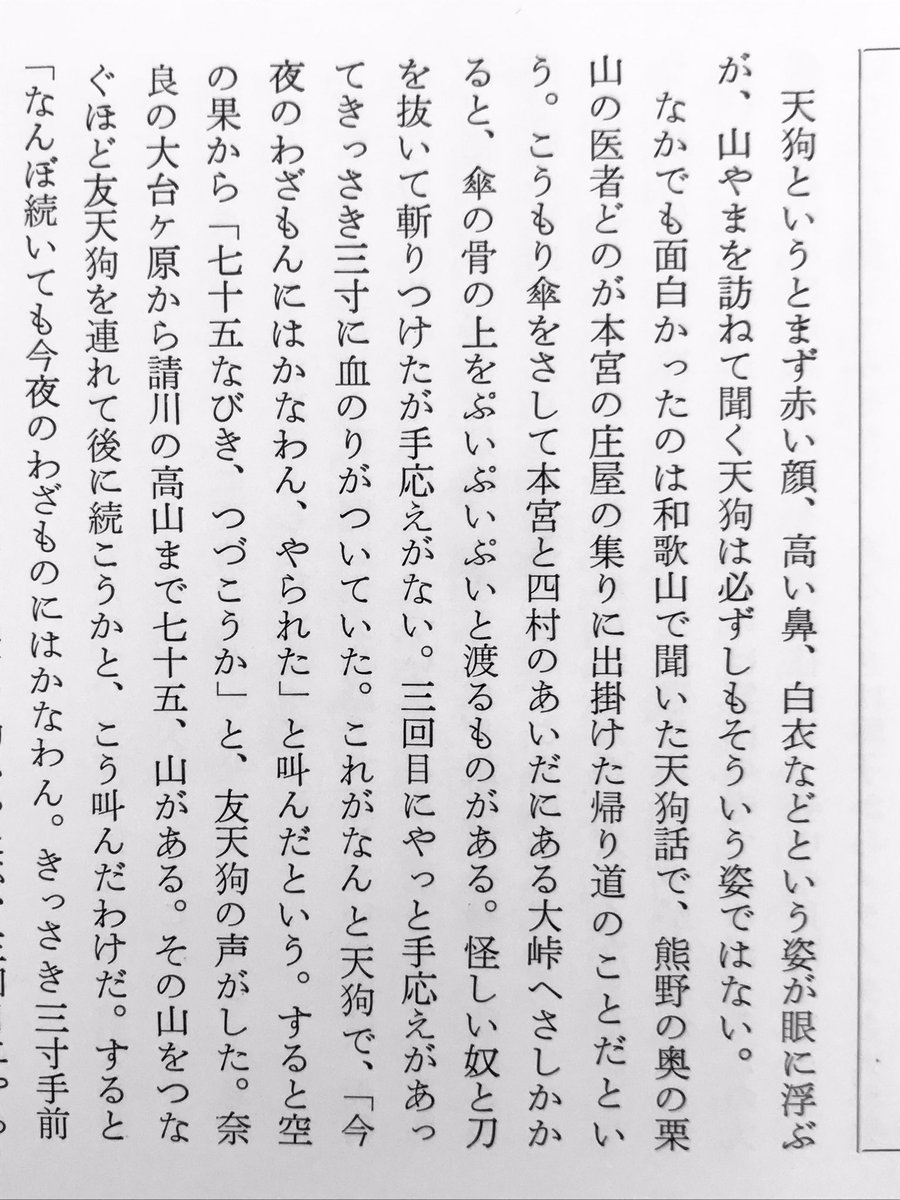 天狗というとまず赤い顔、高い鼻、白衣などという姿が眼に浮ぶ
が、山やまを訪ねて聞く天狗は必ずしもそういう姿ではない。
なかでも面白かったのは和歌山で聞いた天狗話で、熊野の奥の栗
山の医者どのが本宮の庄屋の集りに出掛けた帰り道のことだとい
う。こうもり傘をさして本宮と四村のあいだにある大峠へさしかか
ると、傘の骨の上をぷいぷいぷいと渡るものがある。怪しい奴と刀
を抜いて斬りつけたが手応えがない。三回目にやっと手応えがあっ
てきっさき三寸に血のりがついていた。これがなんと天狗で、「今
夜のわざもんにはかなわん、やられた」と叫んだという。すると空
の果から「七十五なびき、つづこうか」と、友天狗の声がした。奈
良の大台ヶ原から請川の高山まで七十五、山がある。その山をつな
ぐほど友天狗を連れて後に続こうかと、こう叫んだわけだ。すると
「なんぼ続いても今夜のわざものにはかなわん。きっさき三寸手前